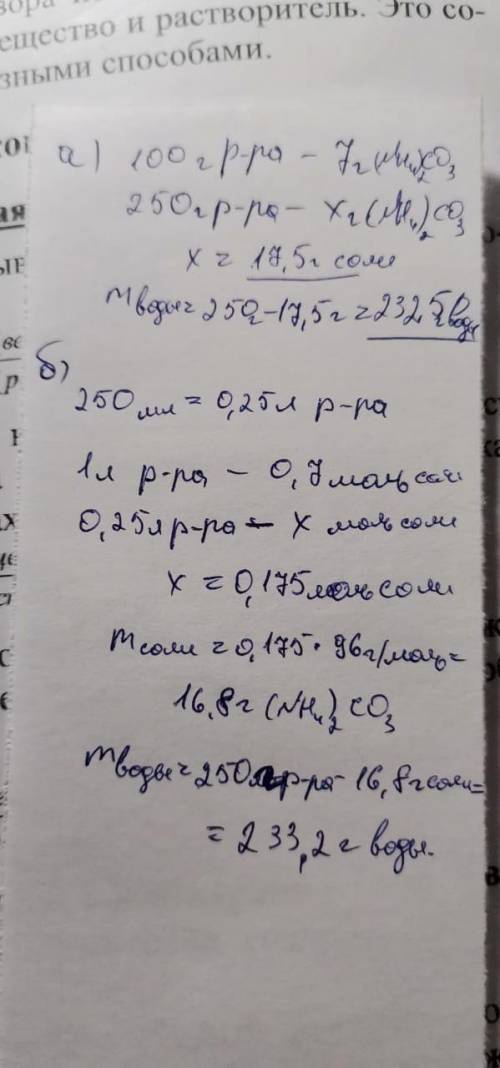 вора
ещество и растворитель. Это со-
зными способами.
а) 100г р-ра – 7г (NH₄)₂CO₃
250г р-ра – xг (NH₄)₂CO₃
x = 17,5г соли
m воды = 250г – 17,5г = 232,5г воды
б)
250 мл = 0,25л р-ра
1л р-ра – 0,7 моль соли
0,25л р-ра – x моль соли
x = 0,175 моль соли
m соли = 0,175 · 96г/моль =
16,8г (NH₄)₂CO₃
m воды = 250 р-ра – 16,8г соли =
= 233,2г воды.